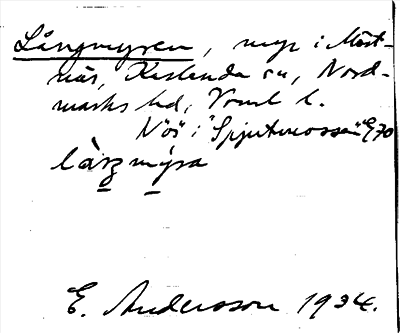 Långmyren, myr i Måst-
när, Karlanda sn, Nord-
marks hd, Vrml l.
Nö i "Spjutmossen" E70
làŋmýra
E. Andersson 1934.